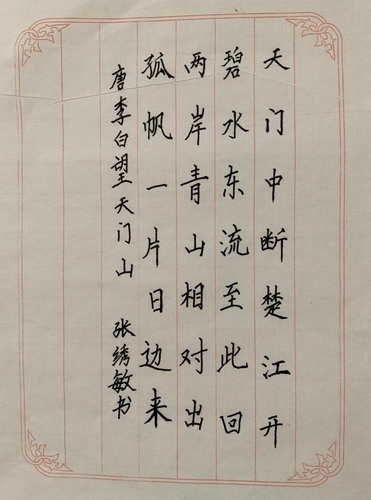 天门中断楚江开
碧水东流至此回
两岸青山相对出
孤帆一片日边来
唐李白望天门山 张绣敏书